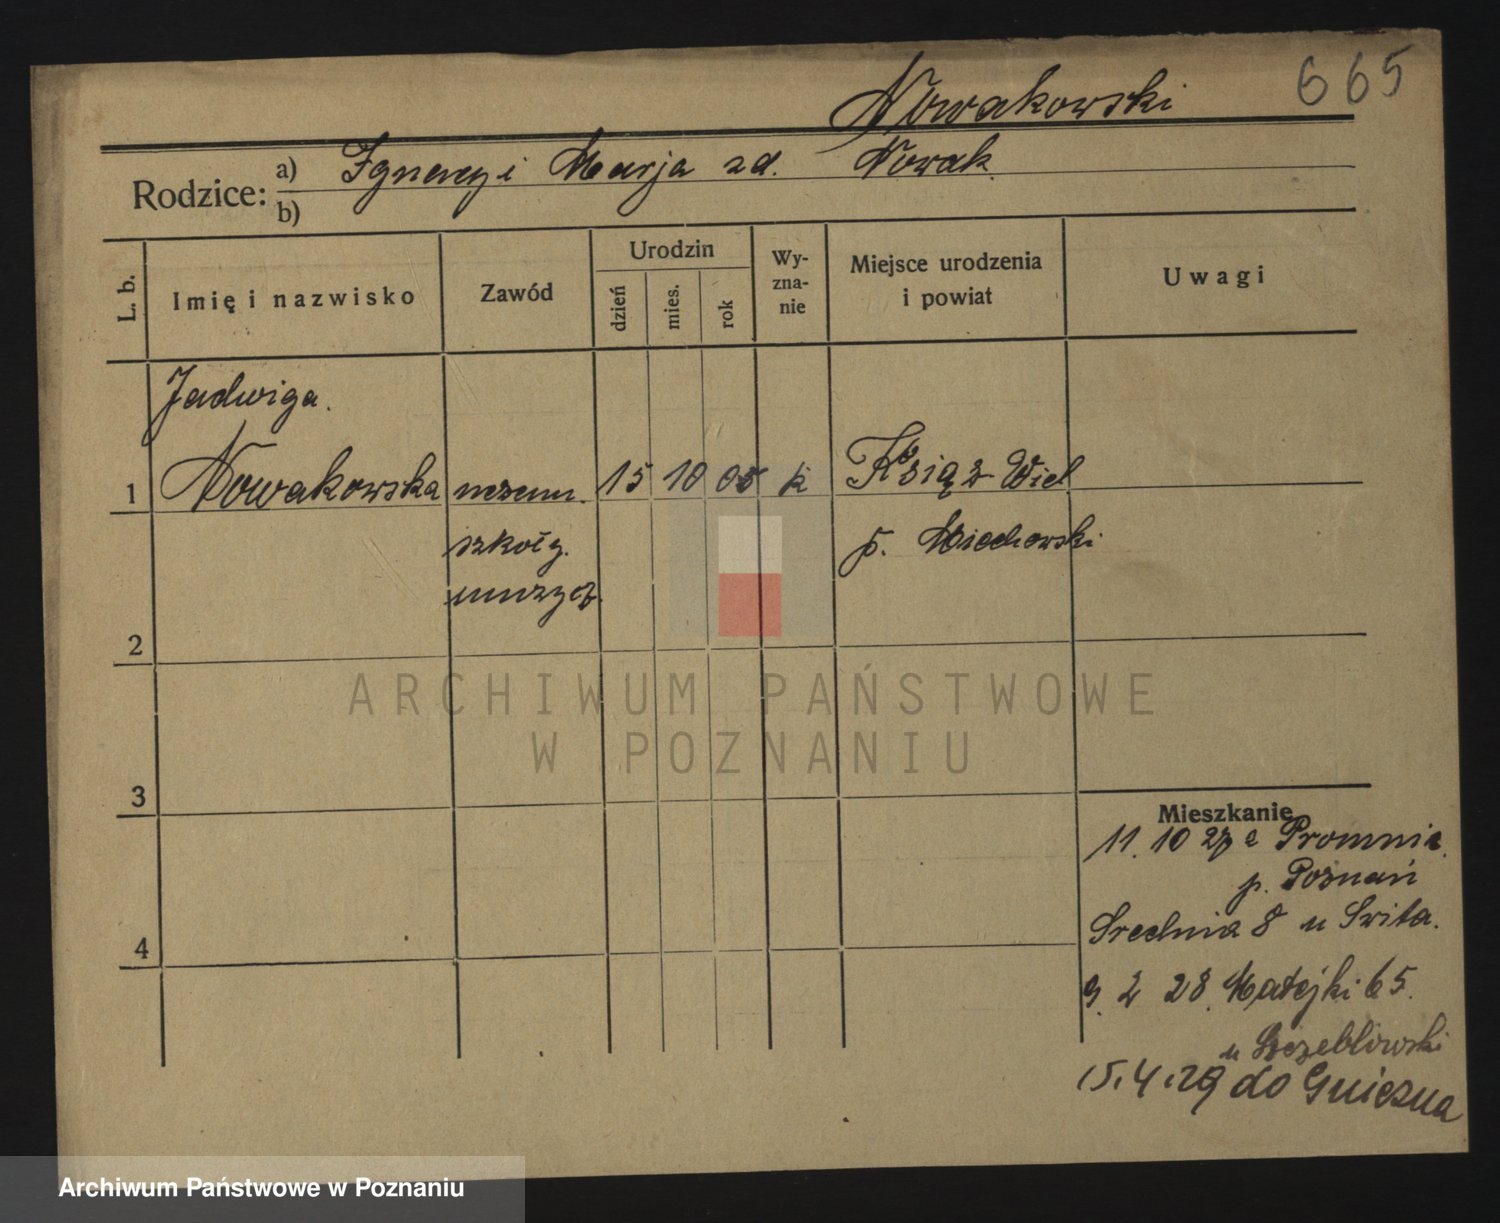 665
Nowakowski
Rodzice: a) Ignacy i Marja zd. Nowak.
b)
L. b.
Imię i nazwisko
Zawód
Urodzin
dzień
mies.
rok
Wy-
zna-
nie
Miejsce urodzenia
i powiat
Uwagi
Jadwiga.
1 Nowakowska uczenn. 15 10 05 k Książ Wiel
szkoły. p. Miechowski
muzycz.
2
ARCHIWUM PAŃSTWOWE
W POZNANIU
3
Mieszkanie
11. 10 27 z Promnic.
p. Poznań
4
Srednia 8 u Swita.
9. 2 28. Matejki 65.
u Szczeblowski
15.4.29 do Gniezna
Archiwum Państwowe w Poznaniu